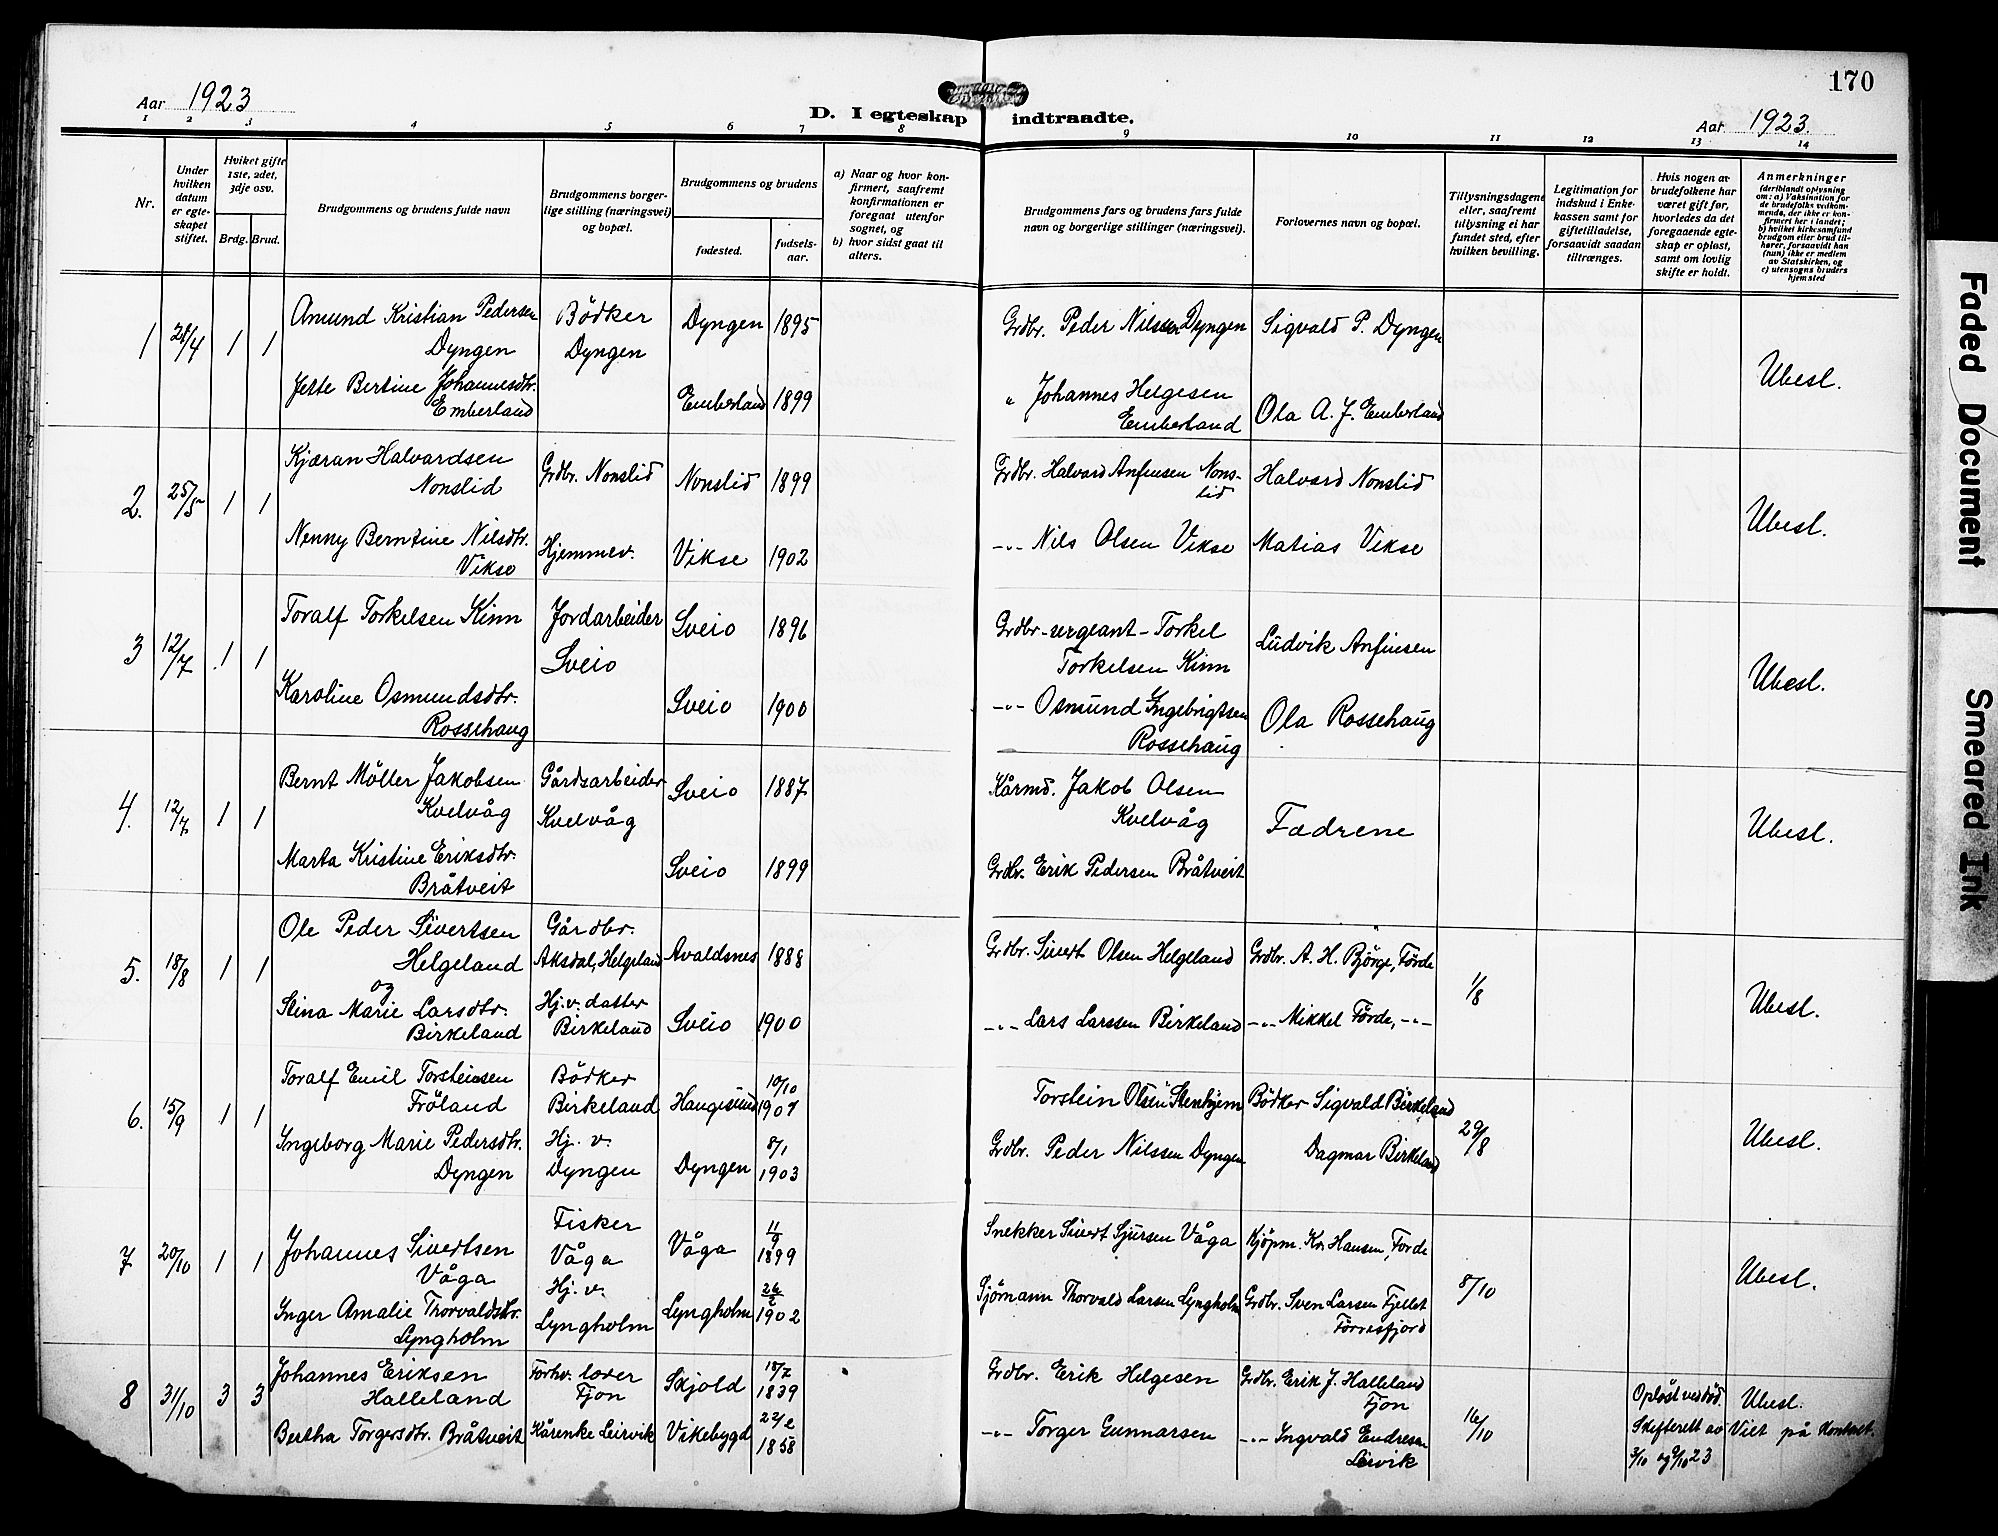 170
Aar 1923
D. I egteskap indtraadte.
Aar 1923.
1 2 3 4 5 6 7 8 9 10 11 12 13 14
Nr.
Under hvilken datum er egteskapet stiftet.
Hviket gifte 1ste, 2det, 3dje osv.
Brdg. Brud.
Brudgommens og brudens fulde navn
Brudgommens borgerlige stilling (næringsvei) og bopæl.
Brudgommens og brudens
fødested.
fødselsaar.
a) Naar og hvor konfirmert, saafremt konfirmationen er foregaat utenfor sognet, og
b) hvor sidst gaat til alters.
Brudgommens fars og brudens fars fulde navn og borgerlige stillinger (næringsvei).
Forlovernes navn og bopæl.
Tillysningsdagene eller, saafremt tillysning ei har fundet sted, efter hvilken bevilling.
Legitimation for indskud i Enkekassen samt for giftetilladelse, forsaavidt saadan tiltrænges.
Hvis nogen av brudefolkene har været gift før, hvorledes da det foregaaende egteskap er opløst, samt om lovlig skifte er holdt.
Anmerkninger
(deriblandt oplysning om: a) Vaksination for de brudefolks vedkommende, der ikke er konfirmert her i landet; b) hvilket kirkesamfund brudgom eller brud tilhører, forsaavidt han (hun) ikke er medlem av Statskirken, og c) utensogns bruders hjemsted
1 21/4 1 1 Amund Kristian Pedersen Dyngen Bödker Dyngen Dyngen 1895 Grdbr. Peder Nilssen Dyngen Sigvald P. Dyngen
Jette Bertine Johannesdtr. Emberland Emberland 1899 " Johannes Helgesen Emberland Ola A. J. Emberland Ubesl.
2. 25/5 1 1 Kjæran Halvardsen Nonslid Grdbr. Nonslid Nonslid 1899 Grdbr. Halvard Anfinsen Nonslid Halvard Nonslid
Nenny Berntine Nilsdtr. Vikse Hjemmev. Vikse 1902 -"- Nils Olsen Vikse Matias Vikse Ubesl.
3 12/7 1 1 Toralf Torkelsen Kinn Jordarbeider Sveio Sveio 1896 Grdbr-sergeant-Torkel Torkelsen Kinn Ludvik Anfinsen
Karoline Osmundsdtr. Rossehaug Sveio 1900 -"- Osmund Ingebrigtsen Rossehaug Ola Rossehaug Ubesl.
4. 12/7 1 1 Bernt Möller Jakobsen Kvelvåg Gårdsarbeider Kvelvåg Sveio 1887 Kårmd. Jakob Olsen Kvelvåg Fædrene
Marta Kristine Eriksdtr. Bråtveit Sveio 1899 Grdbr. Erik Pedersen Bråtveit Ubesl.
5. 18/8 1 1 Ole Peder Sivertsen Helgeland Gårdbr. Aksdal, Helgeland Avaldsnes 1888 Grdbr. Sivert Olsen Helgeland Grdbr. A. H. Björge, Förde 1/8
og
Stina Marie Larsdtr. Birkeland Hj.v. datter Birkeland Sveio 1900 -"- Lars Larssen Birkeland -"- Mikkel Förde, -"- Ubesl.
6. 15/9 1 1 Toralf Emil Torsteinsen Fröland Bödker Birkeland Haugesund 10/10 1901 Torstein Olsen Stenhjem Bödker Sigvald Birkeland
Ingeborg Marie Pedersdtr. Dyngen Hj. v. Dyngen Dyngen 8/1 1903 Grdbr. Peder Nilssen Dyngen Dagmar Birkeland 29/8 Ubesl.
7 20/10 1 1 Johannes Sivertsen Våga Fisker Våga Våga 11/9 1899 Snekker Sivert Sjursen Våga Kjöpm. Kr. Hansen, Förde
Inger Amalie Thorvaldsdtr. Lyngholm Hj. v. Lyngholm Lyngholm 26/2 1902 Sjömann Thorvald Larsen Lyngholm Grdbr. Sven Larsen Fjellet Förresfjord 8/10 Ubesl.
8 31/10 3 3 Johannes Eriksen Halleland Forhv. lærer Fjon Skjold 18/7 1839 Grdbr. Erik Helgesen Grdbr. Erik J. Halleland Fjon
Bertha Torgersdtr. Bråtveit Kårenke Leirvik Vikebygd 22/2 1858 -"- Torger Gunnarsen -"- Ingvald Endresen Leirvik 16/10 Opløst ved død. Skifterett av 3/10 og 9/10 23 Ubesl. Viet på Kontoret.
Faded Document
Smeared Ink